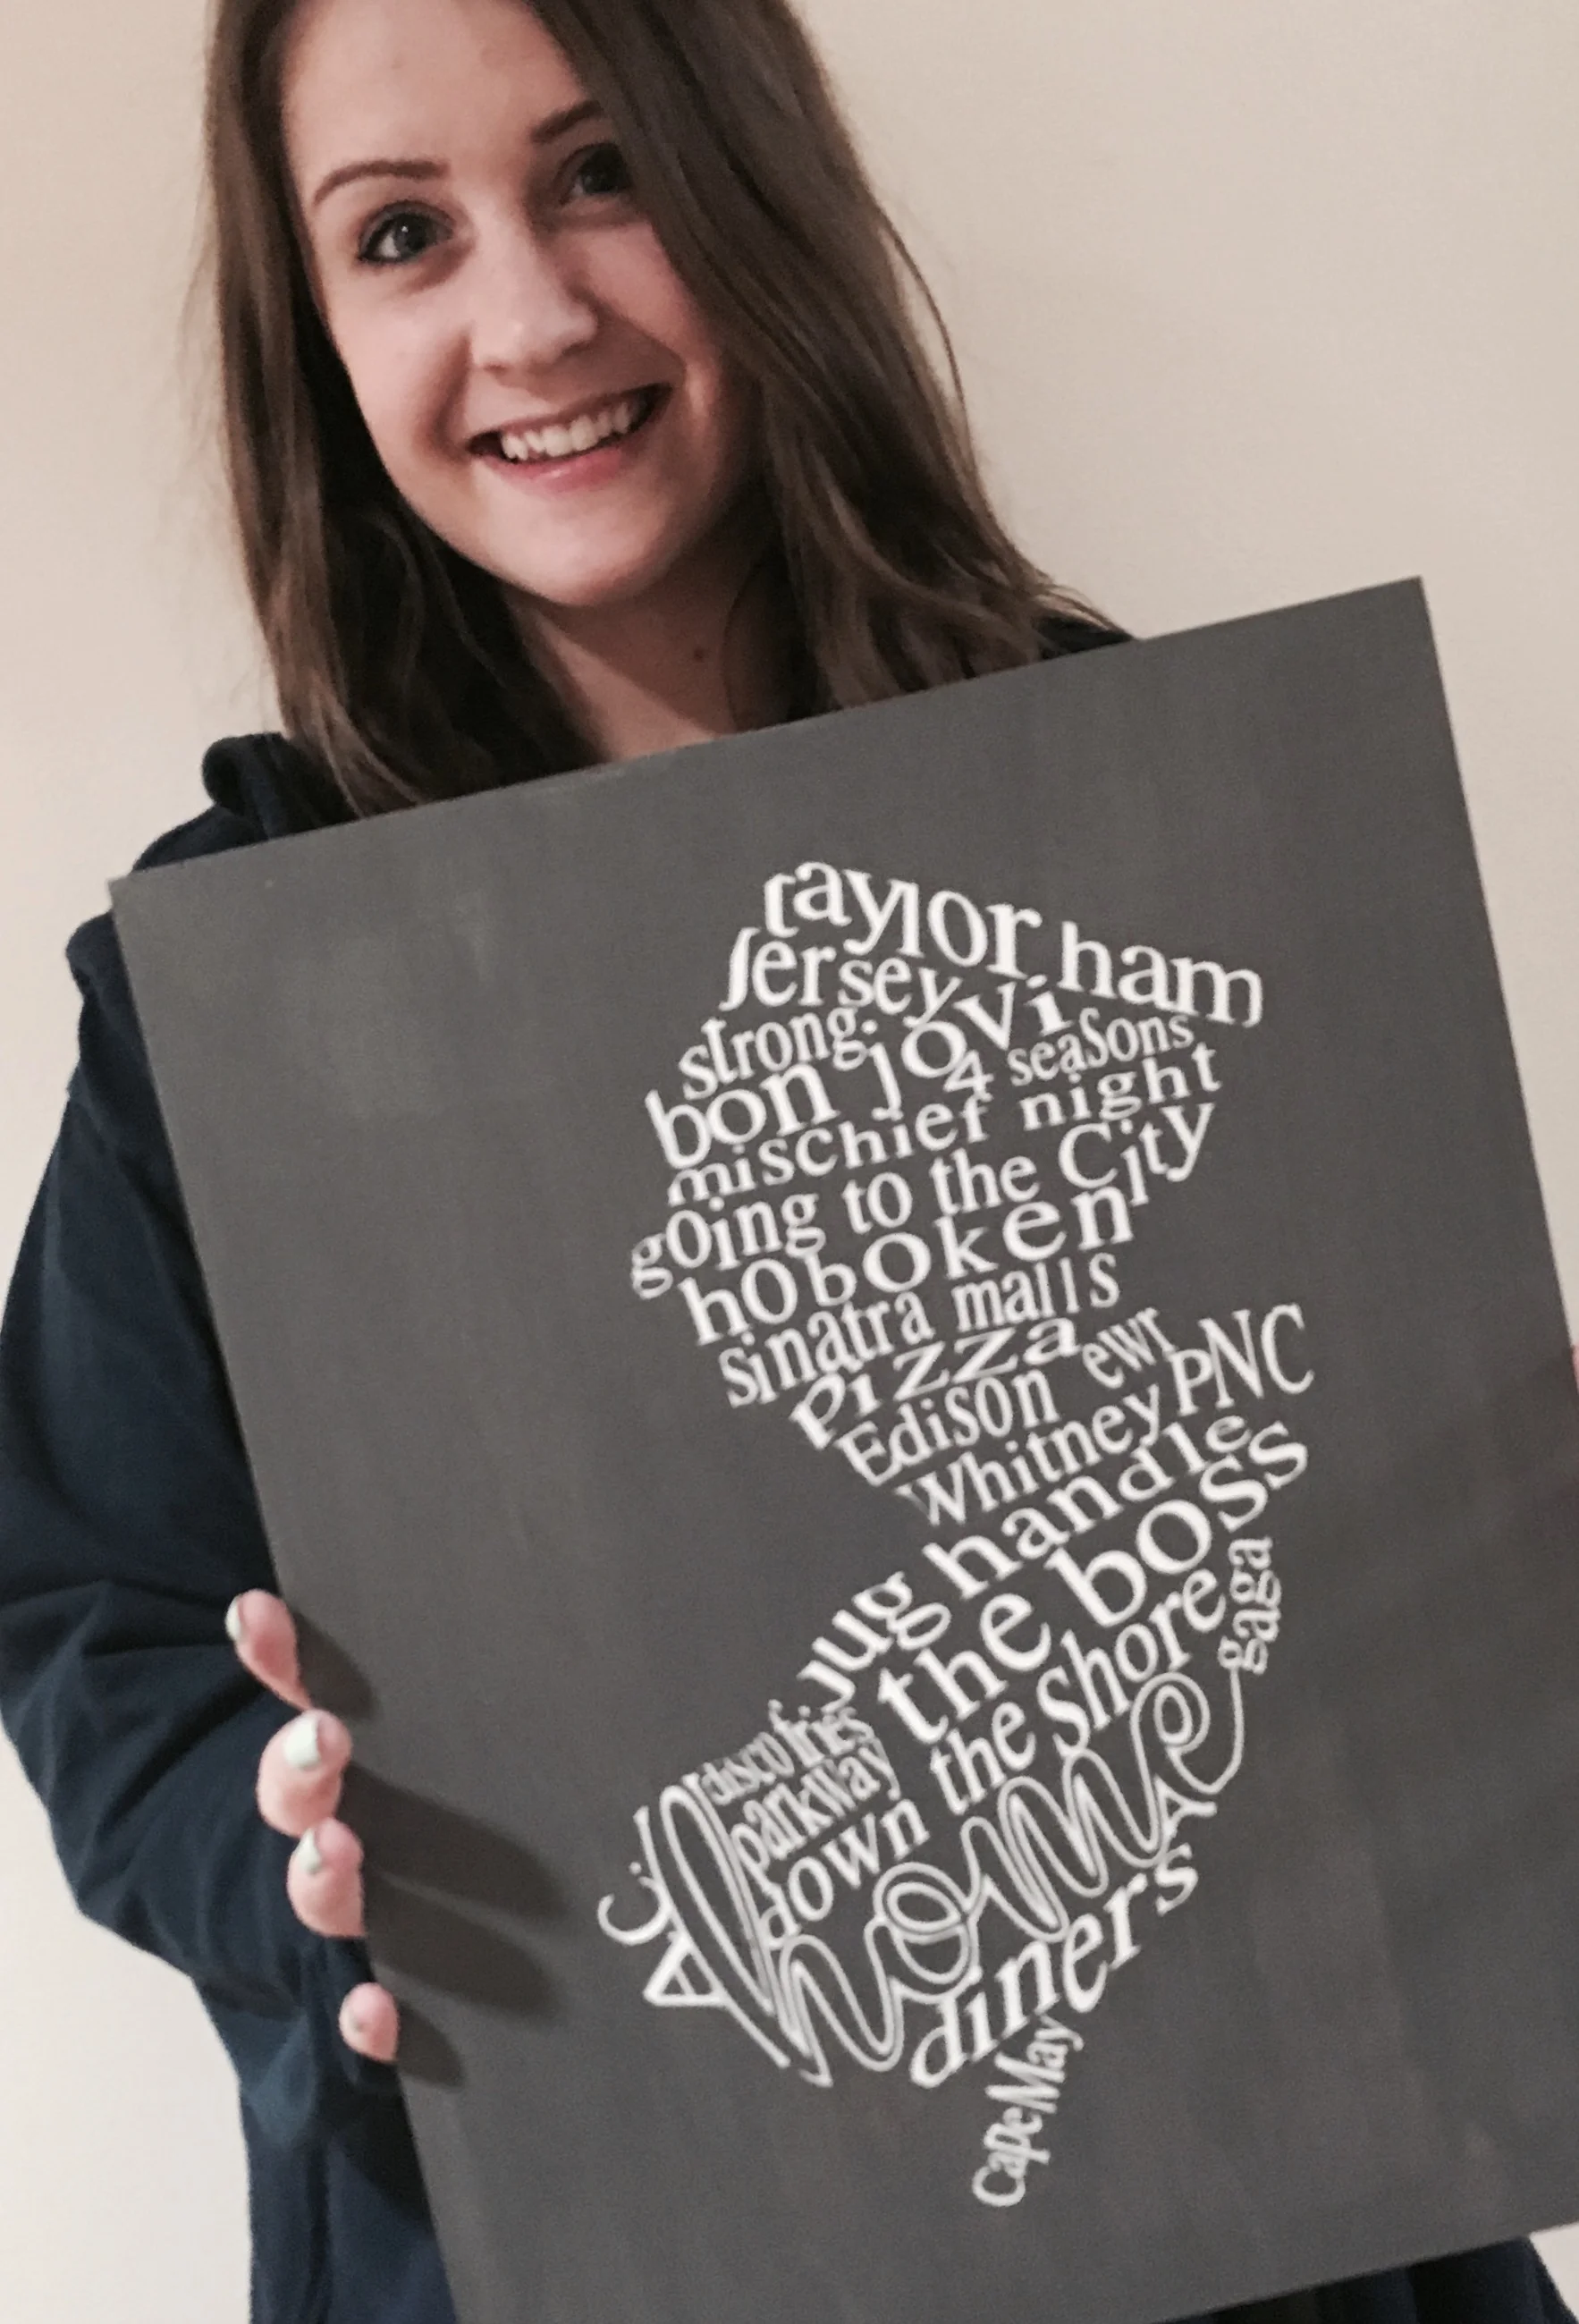 taylor ham
Jersey
strong.
bon jovi
4 seasons
mischief night
going to the City
hoboken
sinatra malls
pizza
ewr
Edison
PNC
Whitney
jug handle
the boss
gaga
disco fries
parkway
down the shore
A.C.
home
diners
Cape May